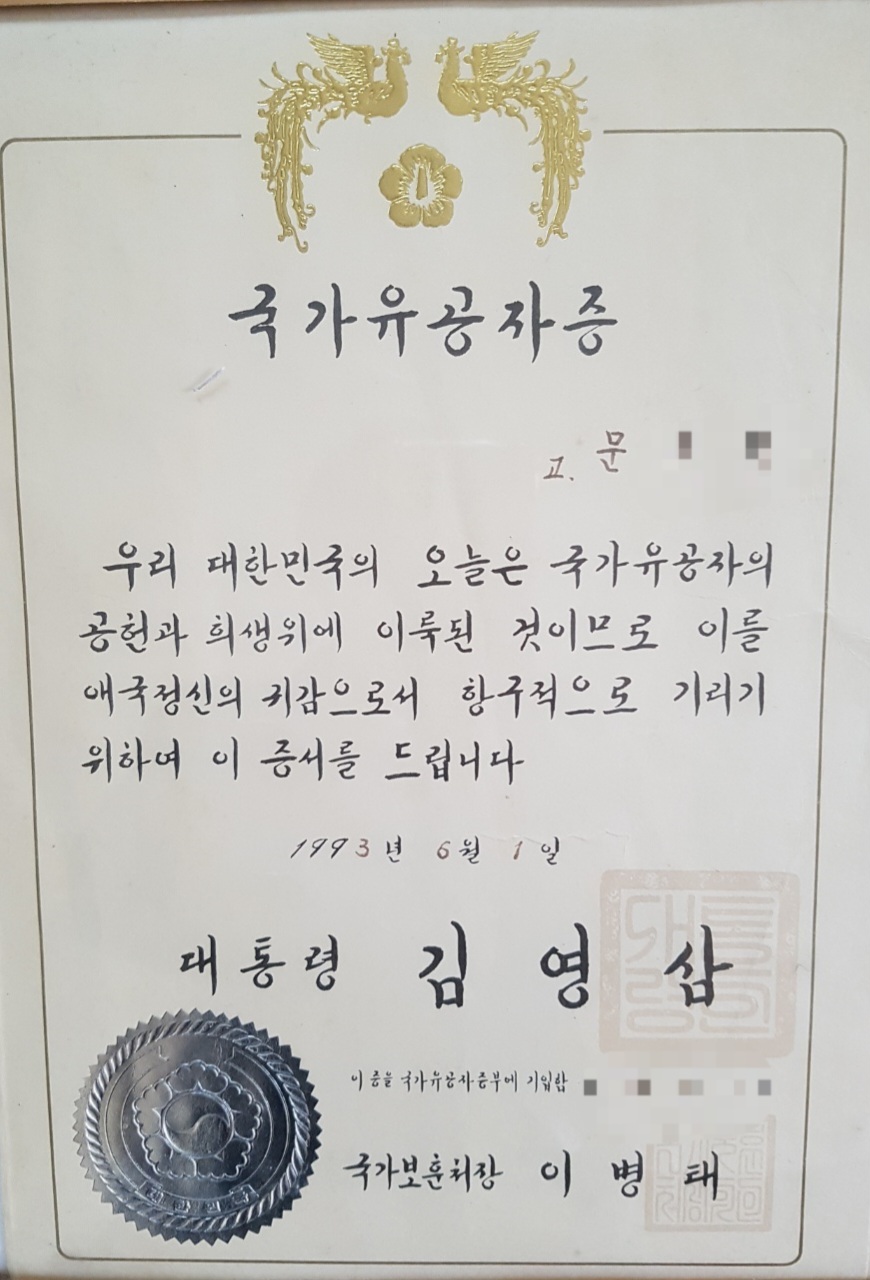 국가유공자증
고. 문
우리 대한민국의 오늘은 국가유공자의
공헌과 희생위에 이룩된 것이므로 이를
애국정신의 귀감으로서 항구적으로 기리기
위하여 이 증서를 드립니다
1993년 6월 1일
대통령 김영삼
이 증을 국가유공자증부에 기입함
국가보훈처장 이병태